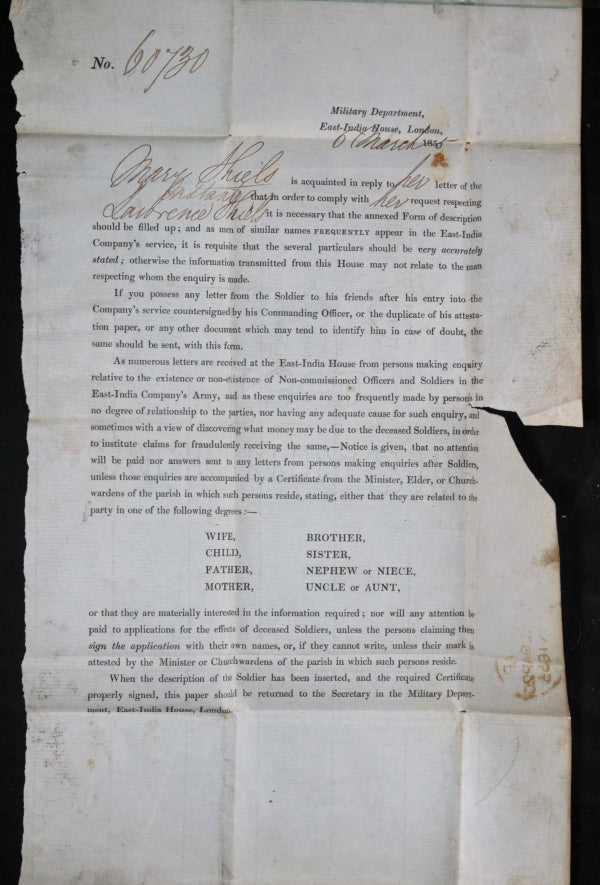 No. 60730
Military Department,
East-India House, London,
6 March 1855
Mary Shiels is acquainted in reply to her letter of the
1st Instant that in order to comply with her request respecting
Lawrence Shiels it is necessary that the annexed Form of description
should be filled up; and as men of similar names FREQUENTLY appear in the East-India
Company's service, it is requisite that the several particulars should be very accurately
stated; otherwise the information transmitted from this House may not relate to the man
respecting whom the enquiry is made.
If you possess any letter from the Soldier to his friends after his entry into the
Company's service countersigned by his Commanding Officer, or the duplicate of his attesta-
tion paper, or any other document which may tend to identify him in case of doubt, the
same should be sent, with this form.
As numerous letters are received at the East-India House from persons making enquiry
relative to the existence or non-existence of Non-commissioned Officers and Soldiers in the
East-India Company's Army, and as these enquiries are too frequently made by persons in
no degree of relationship to the parties, nor having any adequate cause for such enquiry, and
sometimes with a view of discovering what money may be due to the deceased Soldiers, in order
to institute claims for fraudulently receiving the same,—Notice is given, that no attention
will be paid nor answers sent to any letters from persons making enquiries after Soldiers,
unless those enquiries are accompanied by a Certificate from the Minister, Elder, or Church-
wardens of the parish in which such persons reside, stating, either that they are related to the
party in one of the following degrees:—
WIFE, BROTHER,
CHILD, SISTER,
FATHER, NEPHEW or NIECE,
MOTHER, UNCLE or AUNT,
or that they are materially interested in the information required; nor will any attention be
paid to applications for the effects of deceased Soldiers, unless the persons claiming them
sign the application with their own names, or, if they cannot write, unless their mark is
attested by the Minister or Churchwardens of the parish in which such persons reside.
When the description of the Soldier has been inserted, and the required Certificate
properly signed, this paper should be returned to the Secretary in the Military Depart-
ment, East-India House, London.